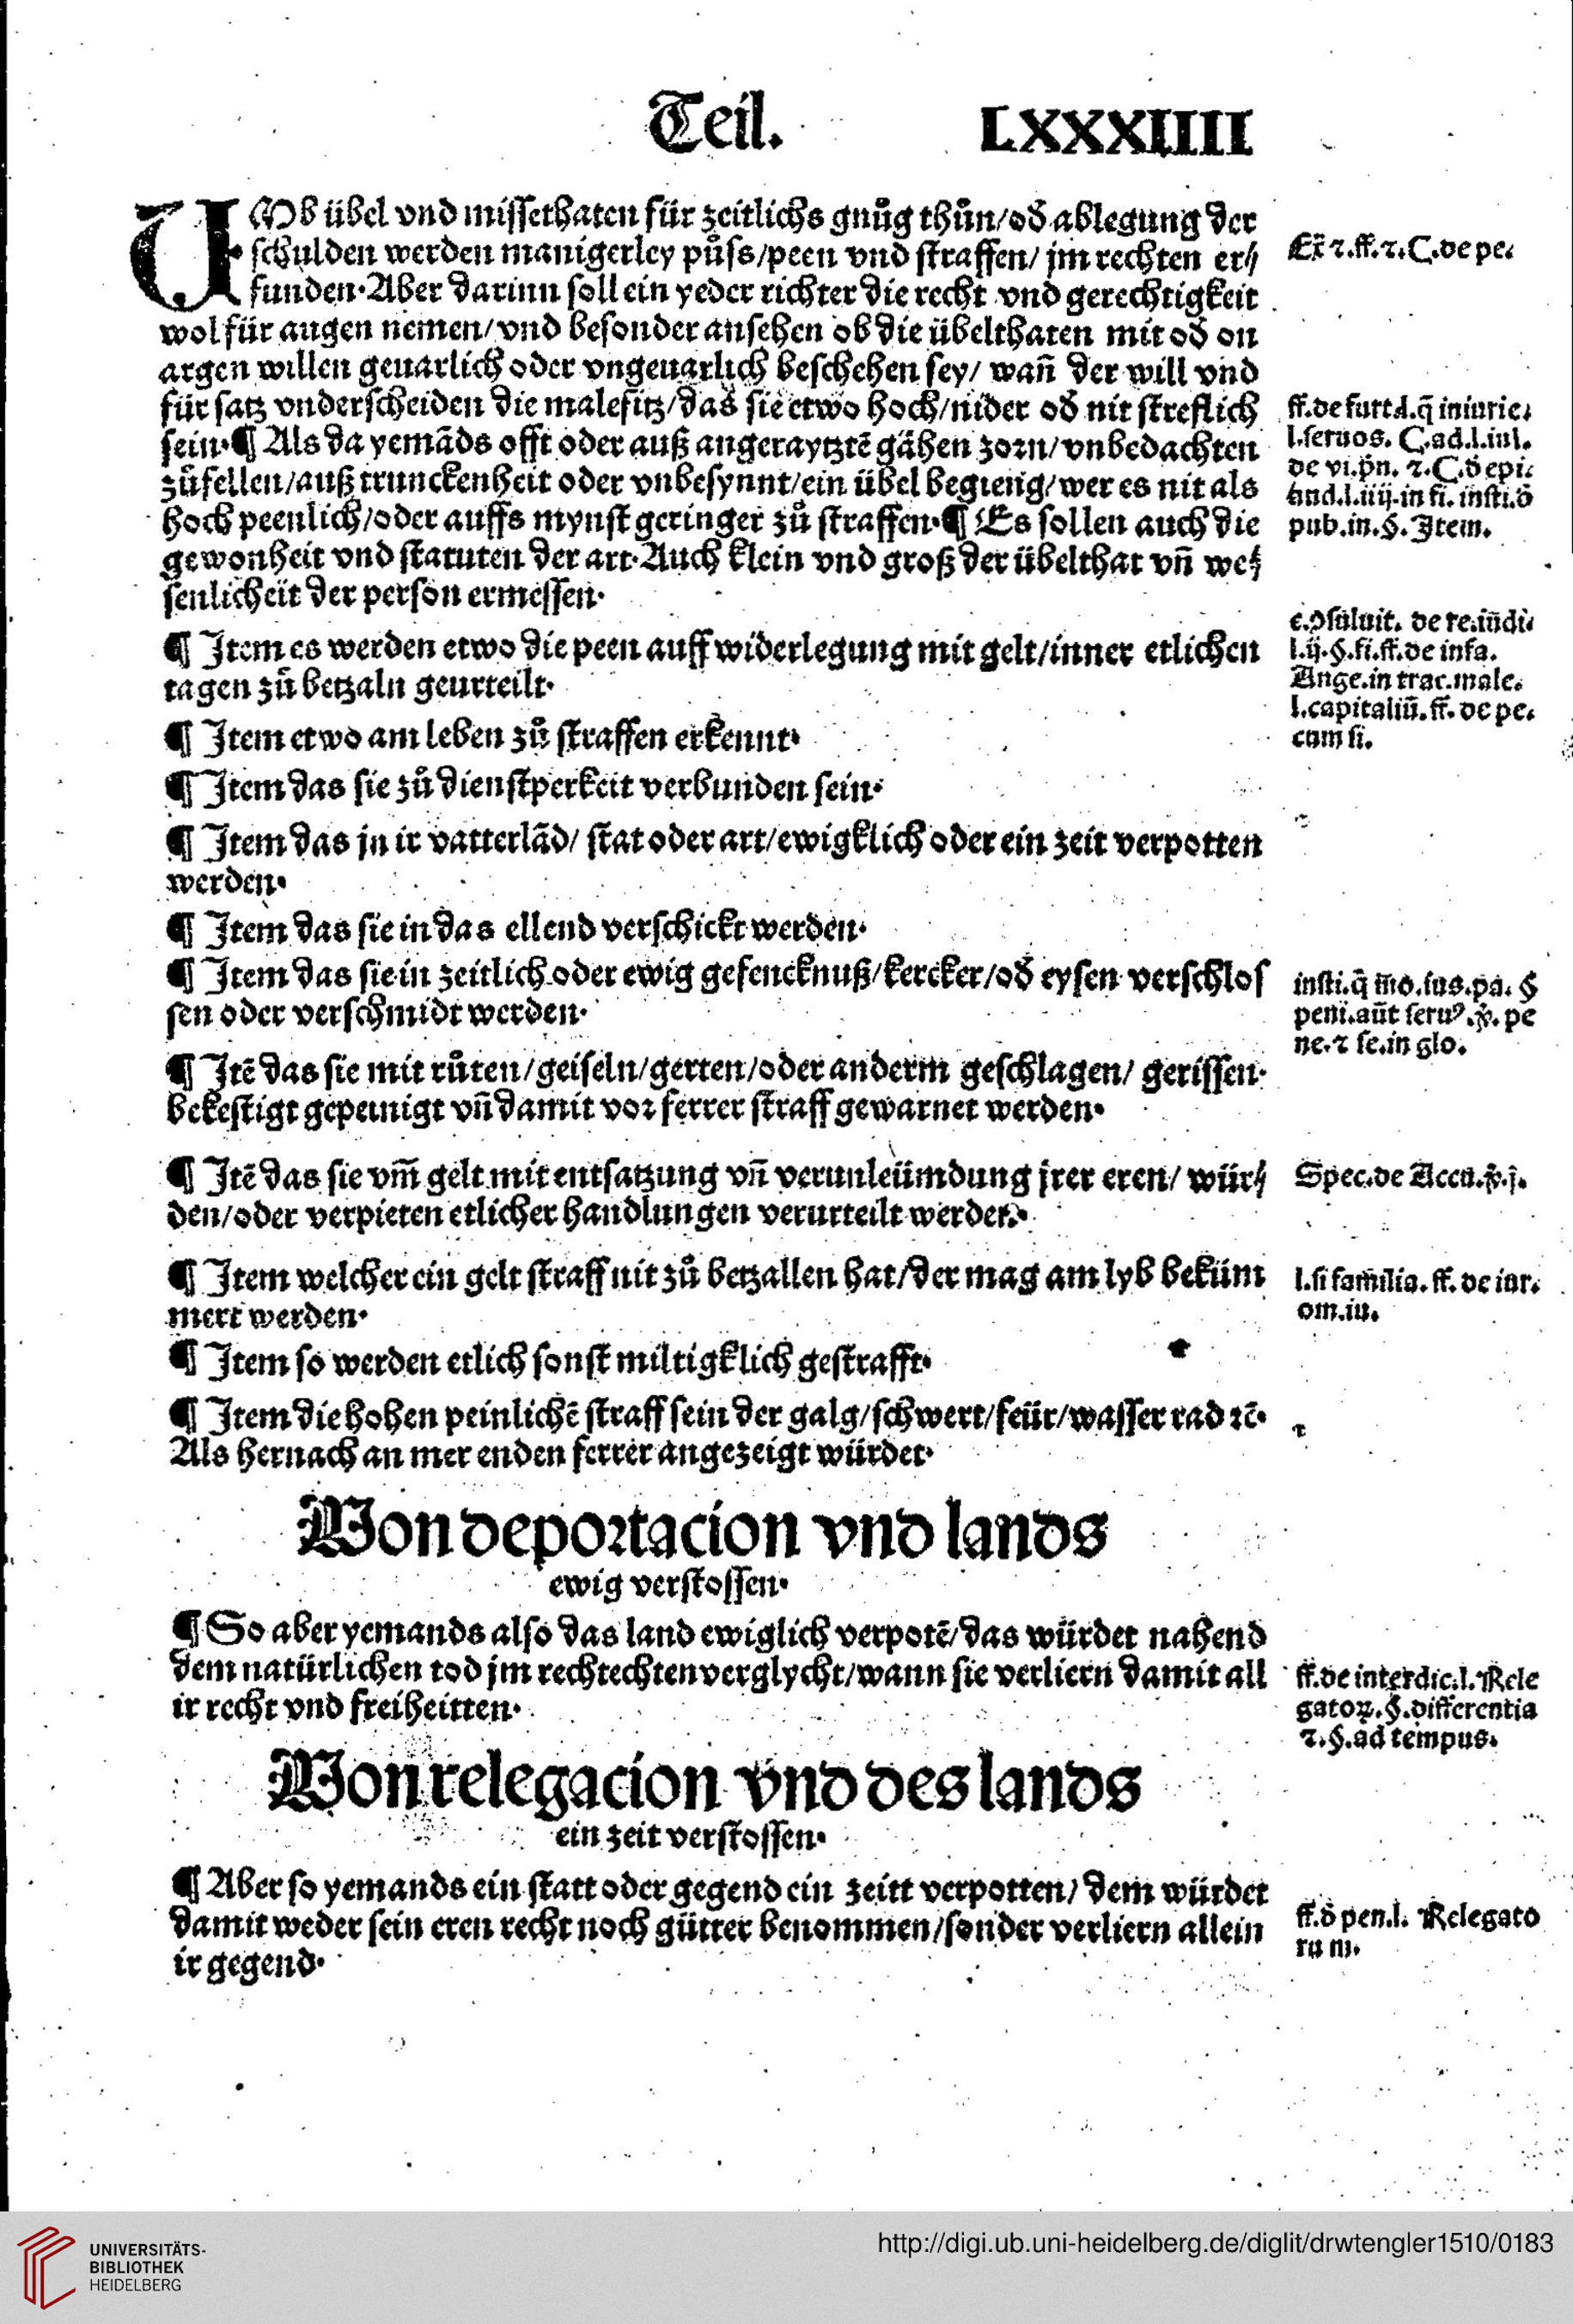 Teil. LXXXIIII
UMb übel vnd missethaten für zeitlichs gnůg thůn/od̃ ablegung der
schulden werden manigerley půss/peen vnd straffen/ jm rechten er⸗
funden. Aber darinn soll ein yeder richter die recht vnd gerechtigkeit
wol für augen nemen/vnd besonder ansehen ob die übelthaten mit od̃ on
argen willen geuarlich oder vngeuarlich beschehen sey/ wañ der will vnd
für satz vnderscheiden die malefitz/das sie etwo hoch/nider od̃ nit streflich
sein. ¶ Als da yemãds offt oder auß angeraytztẽ gähen zorn/vnbedachten
zůfellen/auß trunckenheit oder vnbesynnt/ein übel begieng/wer es nit als
hoch peenlich/oder auffs mynst geringer zů straffen. ¶ Es sollen auch die
gewonheit vnd statuten der art. Auch klein vnd groß der übelthat vñ we⸗
senlicheit der person ermessen.
¶ Item es werden etwo die peen auff widerlegung mit gelt/inner etlichen
tagen zů betzaln geurteilt.
¶ Item etwo am leben zů straffen erkennt.
¶ Item das sie zů dienstperkeit verbunden sein.
¶ Item das jn ir vatterlãd/ stat oder art/ewigklich oder ein zeit verpotten
werden.
¶ Item das sie in das ellend verschickt werden.
¶ Item das sie in zeitlich oder ewig gefencknuß/kercker/od̃ eysen verschlos
sen oder verschmidt werden.
¶ Itẽ das sie mit růten/geiseln/gerten/oder anderm geschlagen/ gerissen.
bekestigt gepeinigt vñ damit vor ferrer straff gewarnet werden.
¶ Itẽ das sie vm̃ gelt mit entsatzung vñ verunleümdung jrer eren/ wür⸗
den/oder verpieten etlicher handlungen verurteilt werden.
¶ Item welcher ein gelt straff nit zů betzallen hat/der mag am lyb beküm
mert werden.
¶ Item so werden etlich sonst miltigklich gestrafft.
¶ Item die hohen peinlichẽ straff sein der galg/schwert/feür/wasser rad ꝛc̃.
Als hernach an mer enden ferrer angezeigt würdet.
Von deportacion vnd lands
ewig verstossen.
¶ So aber yemands also das land ewiglich verpotẽ/das würdet nahend
dem natürlichen tod jm rechtechten verglycht/wann sie verliern damit all
ir recht vnd freiheitten.
Von relegacion vnd des lands
ein zeit verstossen.
¶ Aber so yemands ein statt oder gegend ein zeitt verpotten/ dem würdet
damit weder sein eren recht noch gütter benommen/sonder verliern allein
ir gegend.
Ex̃ ⁊. ff. ⁊. C. de pe.
ff. de furt. l. q̃ iniurie.
l. seruos. C. ad. l. iul.
de vi. pñ. ⁊. C. d̃ epi.
aud. l. iiij. in fi. insti. d̃
pub. in. §. Item.
c. ꝯsuluit. de re. iũdi.
l. ij. §. fi. ff. de infa.
Ange. in trac. male.
l. capitaliũ. ff. de pe.
cum si.
insti. q̃ m̃o. ius. pa. §
peni. aũt seruꝰ. ꝟ. pe
ne. ⁊ se. in glo.
Spec. de Accu. ꝟ. j.
l. si familia. ff. de iur.
om. iu.
ff. de interdic. l. Rele
gatoꝝ. §. differentia
⁊. §. ad tempus.
ff. d̃ pen. l. Relegato
rum.
UNIVERSITÄTS-
BIBLIOTHEK
HEIDELBERG
http://digi.ub.uni-heidelberg.de/diglit/drwtengler1510/0183